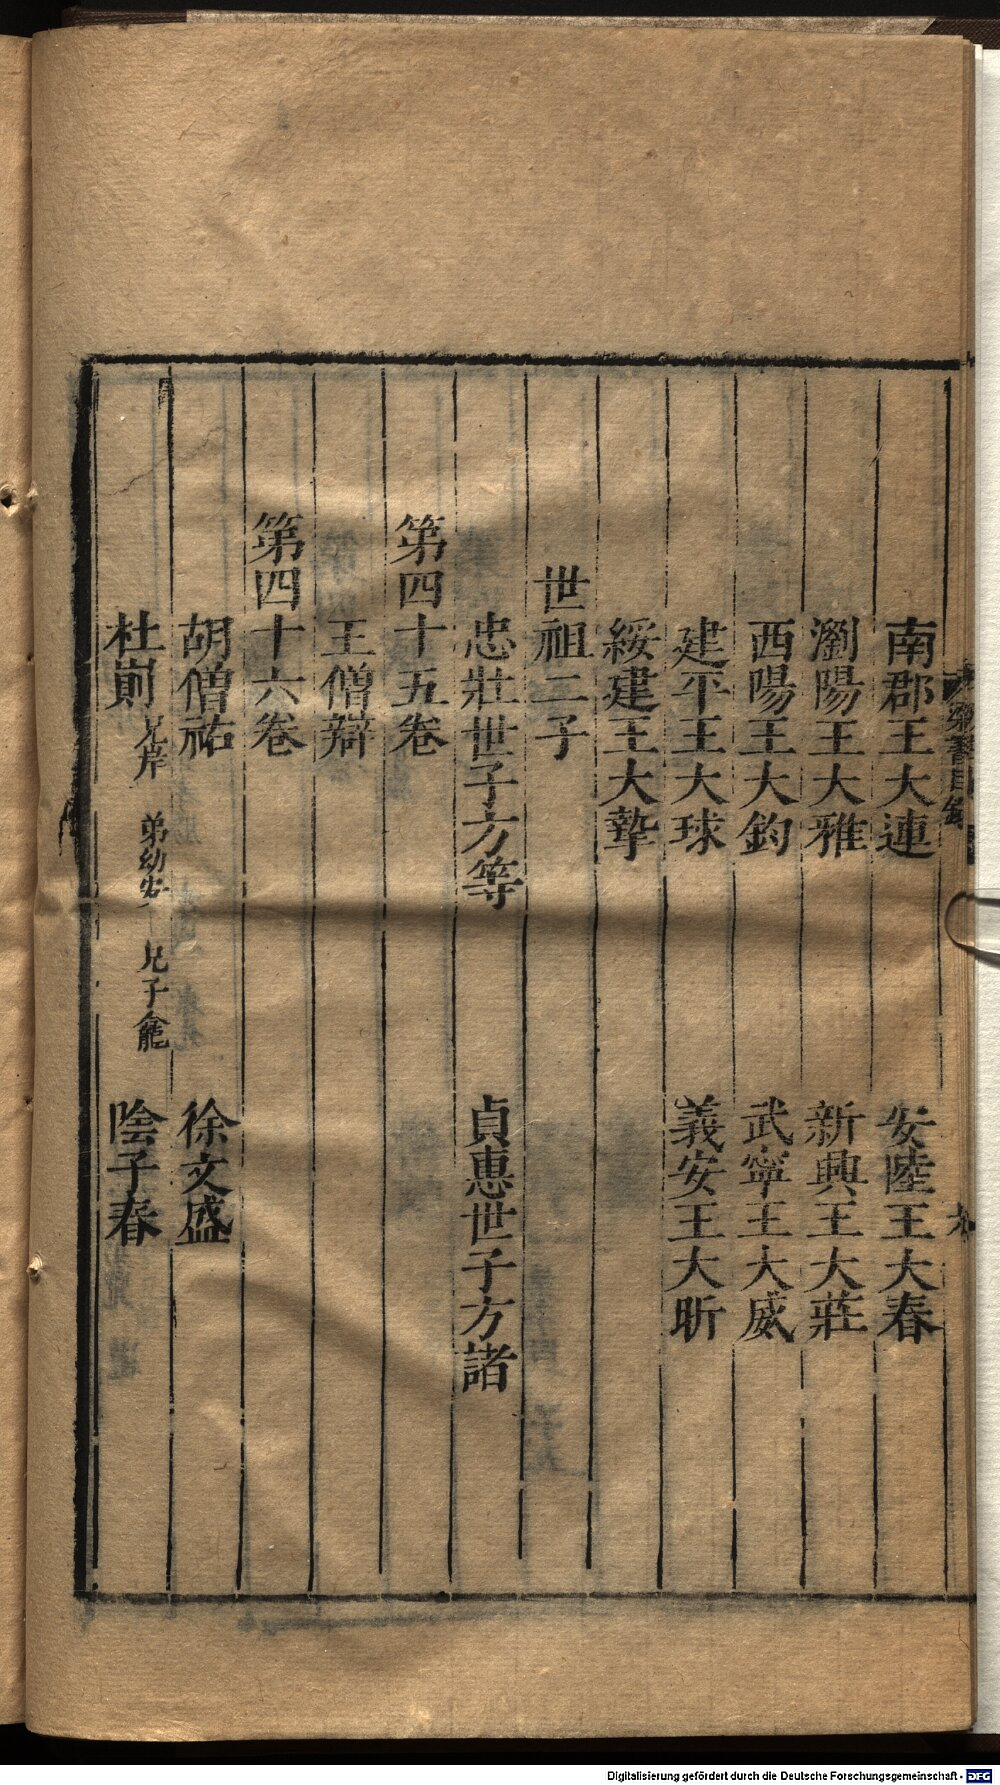 南郡王大連　安陸王大春
瀏陽王大雅　新興王大莊
西陽王大鈞　武寧王大威
建平王大球　義安王大昕
綏建王大摯
世祖二子
忠壯世子方等　貞惠世子方諸
第四十五卷
王僧辯
第四十六卷
胡僧祐　徐文盛
杜崱　兄岸　弟幼安　兄子龕　陰子春
梁書目錄
Digitalisierung gefördert durch die Deutsche Forschungsgemeinschaft - DFG